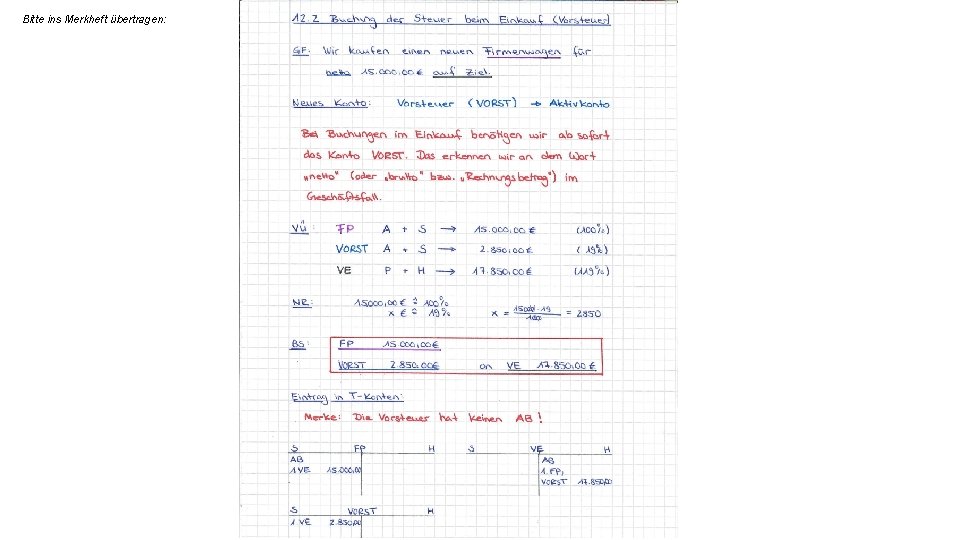 Bitte ins Merkheft übertragen:
12.2 Buchung der Steuer beim Einkauf (Vorsteuer)
GF: Wir kaufen einen neuen Firmenwagen für
netto 15.000,00 € auf Ziel.
Neues Konto: Vorsteuer (VORST) → Aktivkonto
Bei Buchungen im Einkauf benötigen wir ab sofort
das Konto VORST. Das erkennen wir an dem Wort
„netto" (oder „brutto" bzw. „Rechnungsbetrag") im
Geschäftsfall.
VÜ: FP A + S → 15.000,00 € (100%)
VORST A + S → 2.850,00 € (19%)
VE P + H → 17.850,00 € (119%)
NR: 15000,00 € ≙ 100%
x € ≙ 19% x = 15000 · 19 / 100 = 2850
BS: FP 15.000,00 €
VORST 2.850,00 € an VE 17.850,00 €
Eintrag in T-Konten:
Merke: Die Vorsteuer hat keinen AB!
S FP H S VE H
AB AB
1.VE 15.000,00 1.FP,
VORST 17.850,00
S VORST H
1.VE 2.850,00